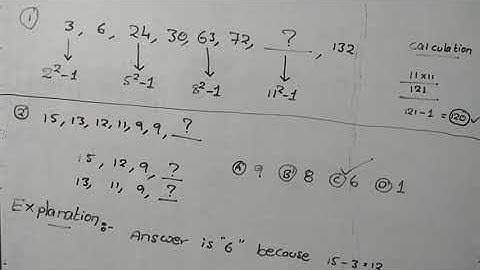 ① 3, 6, 24, 30, 63, 72, ?, 132
2²-1 5²-1 8²-1 11²-1
Calculation
11×11
121
121-1 = 120 ✓
② 15, 13, 12, 11, 9, 9, ?
15, 12, 9, ?
13, 11, 9, ?
Ⓐ 9 Ⓑ 8 Ⓒ 6 ✓ Ⓓ 1
Explanation:-
Answer is "6" because 15-3=12